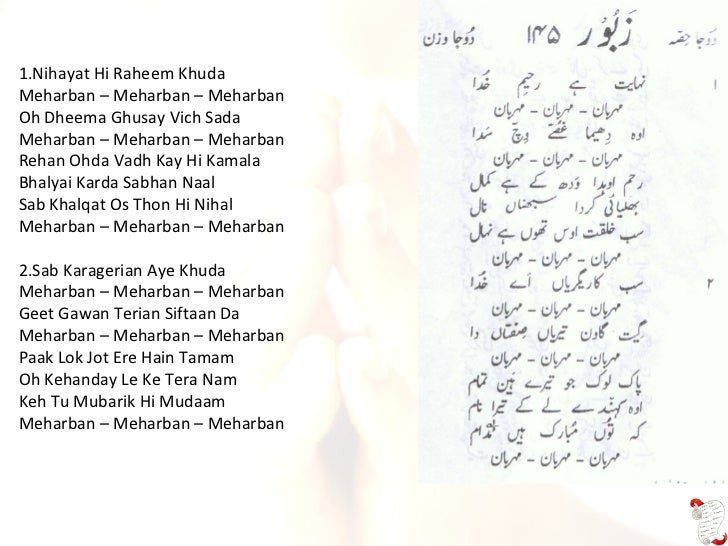 1.Nihayat Hi Raheem Khuda
Meharban – Meharban – Meharban
Oh Dheema Ghusay Vich Sada
Meharban – Meharban – Meharban
Rehan Ohda Vadh Kay Hi Kamala
Bhalyai Karda Sabhan Naal
Sab Khalqat Os Thon Hi Nihal
Meharban – Meharban – Meharban
2.Sab Karagerian Aye Khuda
Meharban – Meharban – Meharban
Geet Gawan Terian Siftaan Da
Meharban – Meharban – Meharban
Paak Lok Jot Ere Hain Tamam
Oh Kehanday Le Ke Tera Nam
Keh Tu Mubarik Hi Mudaam
Meharban – Meharban – Meharban
دُوجا حِصّہ زَبُوْر ۱۴۵ دُوجا وزن
۱ نہایت ہے رحیم خُدا
مہربان - مہربان - مہربان
اوہ دِھیما غُصّے وِچّ سَدا
مہربان - مہربان - مہربان
رحم اوہدا وَدھ کے ہے کمال
بھلیائی کردا سبھناں نال
سب خلقت اوس تھوں ہے نہال
مہربان - مہربان - مہربان
۲ سب کاریگریاں اَے خُدا
مہربان - مہربان - مہربان
گیت گاون تیریاں صِفتاں دا
مہربان - مہربان - مہربان
پاک لوک جو تیرے ہَین تمام
اوہ کہندے لے کے تیرا نام
کہ تُوں مُبارک ہیں مُدام
مہربان - مہربان - مہربان